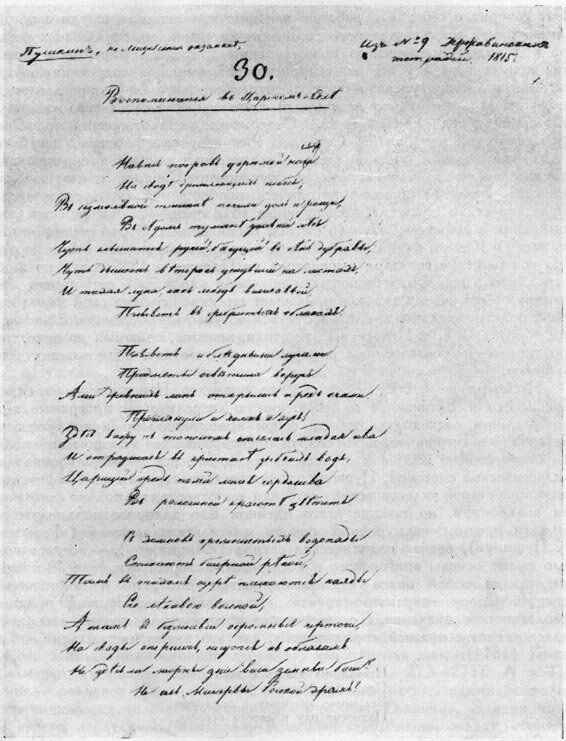 Пушкинъ, не
Изъ № 9 Державинскихъ
тетрадей. 1815.
30.
Воспоминанія въ Царскомъ-Селѣ
Нависъ покровъ угрюмой нощи
На сводѣ дремлющихъ небесъ,
Въ безмолвной тишинѣ почили долъ и рощи,
Въ сѣдомъ туманѣ дальній лѣсъ
Чуть слышится ручей, бѣгущій въ сѣнь дубравы,
Чуть дышетъ вѣтерокъ уснувшій на листахъ,
И тихая луна, какъ лебедь величавый,
Плыветъ въ сребристыхъ облакахъ
Плыветъ — и блѣдными лучами
Предметы освѣтила вкругъ
Аллеи древнихъ липъ открылись предъ очами
Проглянули и холмъ и лугъ;
Здѣсь вижу съ тополомъ сплелась младая ива
И отразилася въ кристалѣ зыбкихъ водъ,
Царицей средь полей лилея горделива
Въ роскошной красотѣ цвѣтетъ
Съ холмовъ кремнистыхъ водопады
Стекаютъ бисерной рѣкой,
Тамъ въ тихомъ озерѣ плескаются наяды
Его лѣнивою волной,
А тамъ въ безмолвіи огромные чертоги
На своды опершись, несутся къ облакамъ
Не здѣсь ли мирны дни вели земные боги?
Не се ль Минервы Росской храмъ?